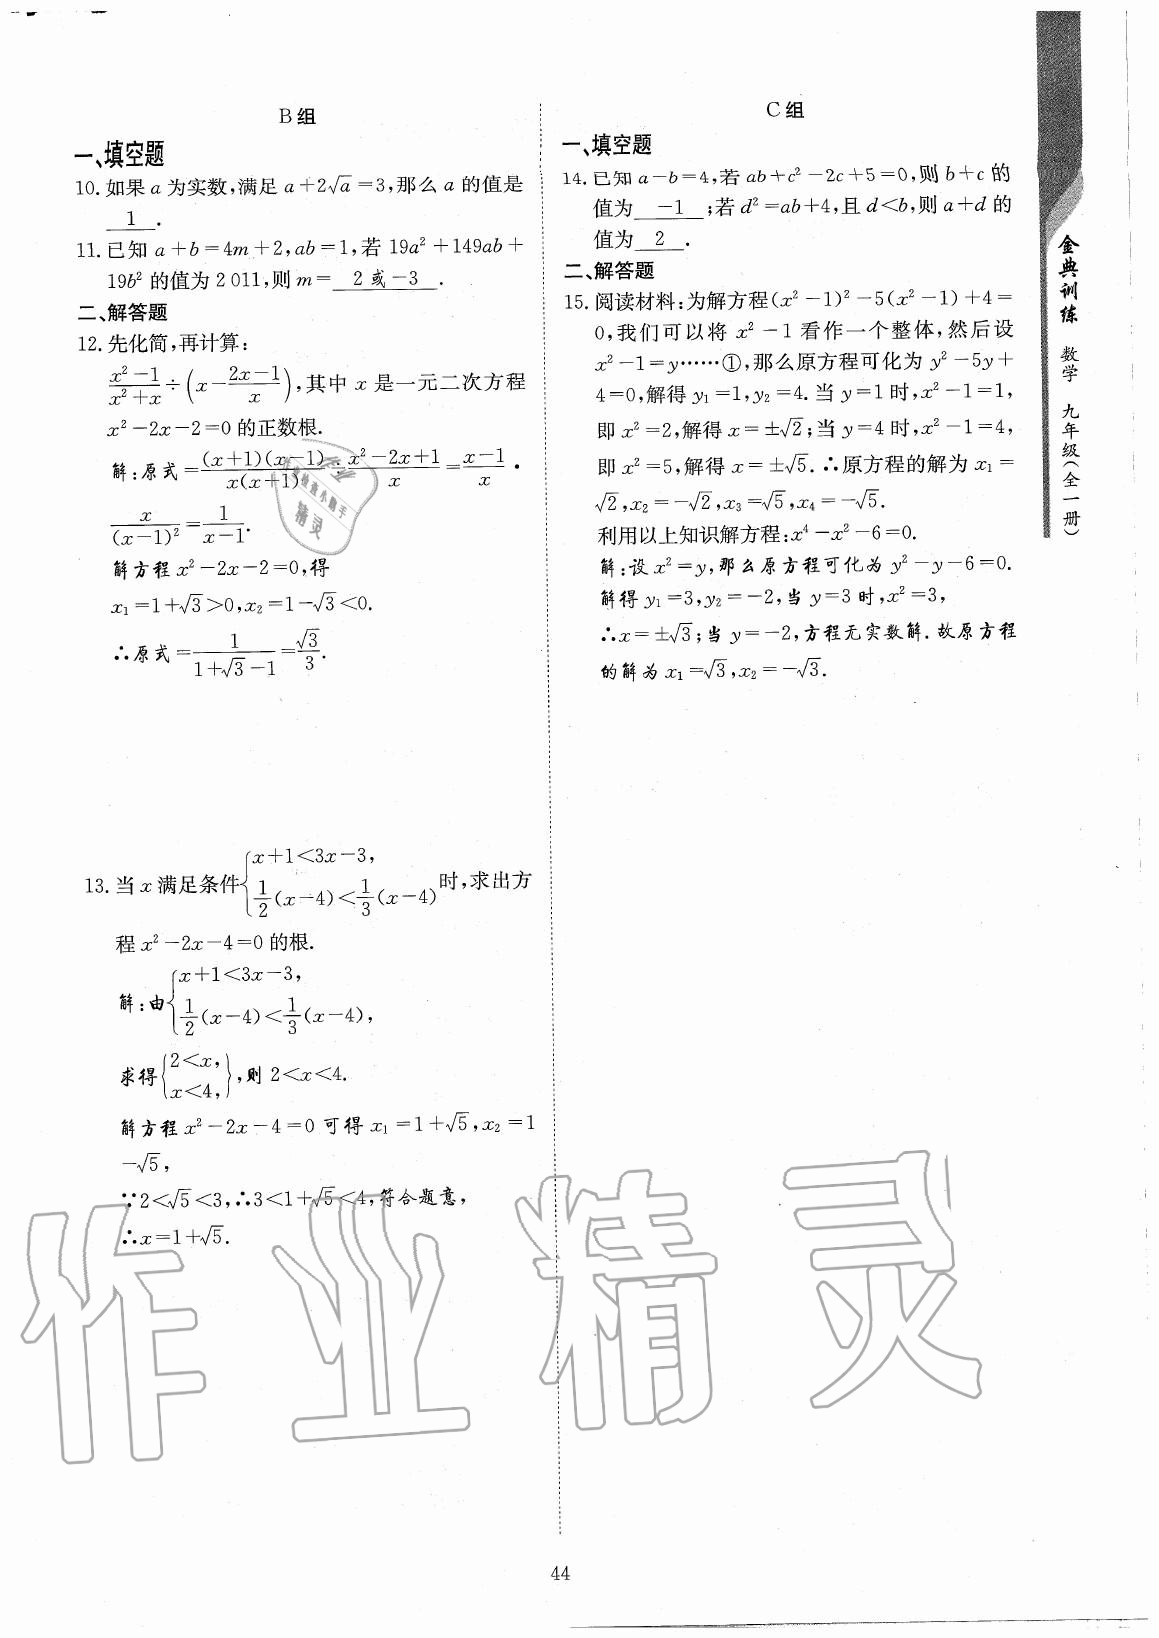 B组
一、填空题
10. 如果 a 为实数,满足 a+2√a=3,那么 a 的值是
1 .
11. 已知 a+b=4m+2,ab=1,若 19a²+149ab+
19b² 的值为 2 011,则 m= 2 或 -3 .
二、解答题
12. 先化简,再计算:
(x²-1)/(x²+x) ÷ (x-(2x-1)/x),其中 x 是一元二次方程
x²-2x-2=0 的正数根.
解:原式=(x+1)(x-1)/x(x+1) ÷ (x²-2x+1)/x=(x-1)/x ·
x/(x-1)²=1/(x-1).
解方程 x²-2x-2=0,得
x₁=1+√3>0,x₂=1-√3<0.
∴原式=1/(1+√3-1)=√3/3.
13. 当 x 满足条件{x+1<3x-3, 1/2(x-4)<1/3(x-4) 时,求出方
程 x²-2x-4=0 的根.
解:由{x+1<3x-3, 1/2(x-4)<1/3(x-4),
求得{2<x, x<4,},则 2<x<4.
解方程 x²-2x-4=0 可得 x₁=1+√5,x₂=1
-√5,
∵2<√5<3,∴3<1+√5<4,符合题意,
∴x=1+√5.
C组
一、填空题
14. 已知 a-b=4,若 ab+c²-2c+5=0,则 b+c 的
值为 -1 ;若 d²=ab+4,且 d<b,则 a+d 的
值为 2 .
二、解答题
15. 阅读材料:为解方程(x²-1)²-5(x²-1)+4=
0,我们可以将 x²-1 看作一个整体,然后设
x²-1=y……①,那么原方程可化为 y²-5y+
4=0,解得 y₁=1,y₂=4. 当 y=1 时,x²-1=1,
即 x²=2,解得 x=±√2;当 y=4 时,x²-1=4,
即 x²=5,解得 x=±√5. ∴原方程的解为 x₁=
√2,x₂=-√2,x₃=√5,x₄=-√5.
利用以上知识解方程:x⁴-x²-6=0.
解:设 x²=y,那么原方程可化为 y²-y-6=0.
解得 y₁=3,y₂=-2,当 y=3 时,x²=3,
∴x=±√3;当 y=-2,方程无实数解. 故原方程
的解为 x₁=√3,x₂=-√3.
金典训练 数学 九年级(全一册)
作业精灵
44